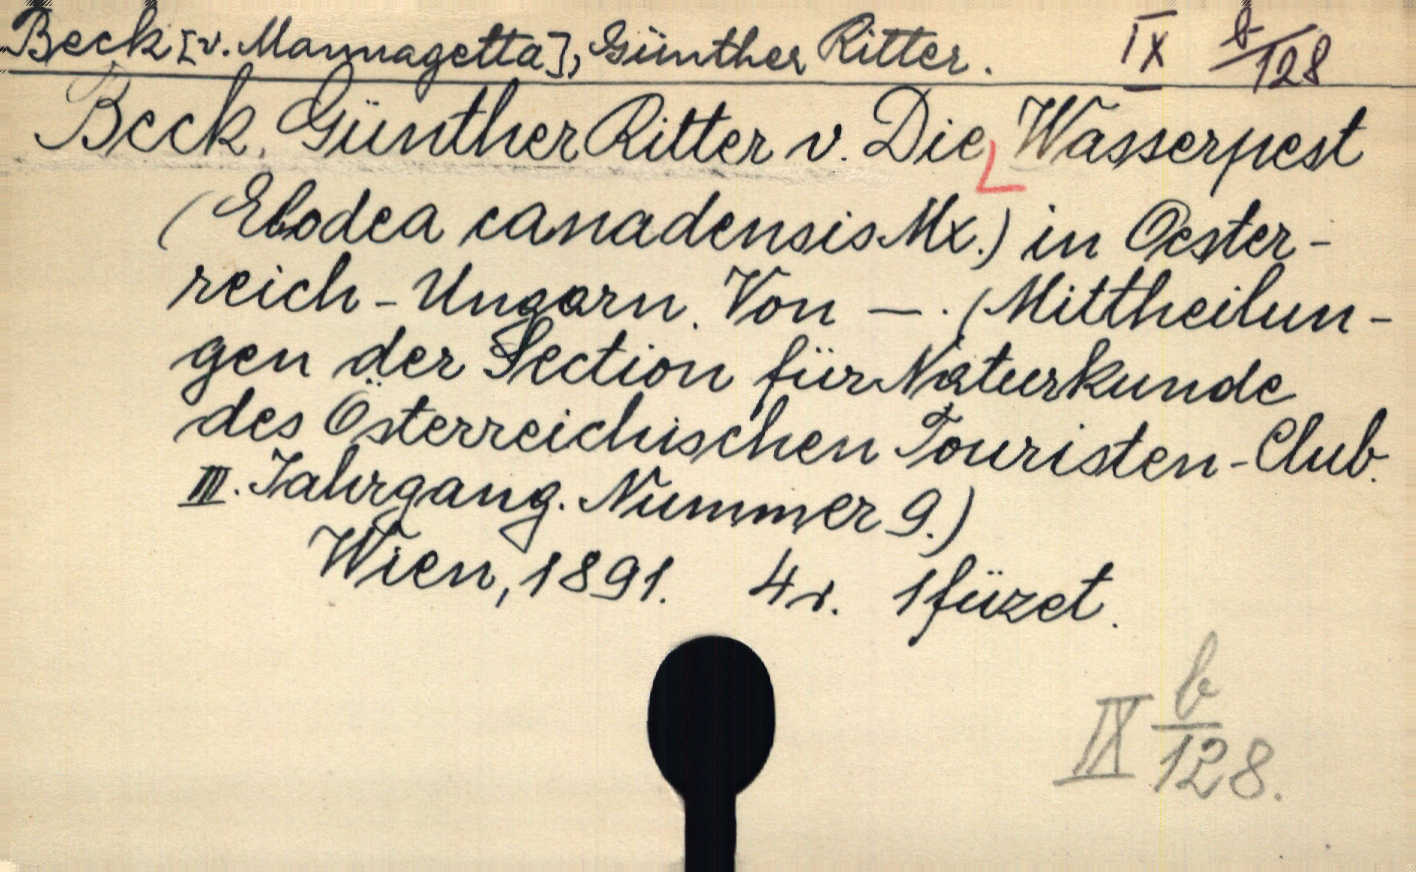 Beck [v. Mannagetta], Günther Ritter. IX b/128
Beck, Günther Ritter v. Die Wasserpest
(Elodea canadensis Mx.) in Oester-
reich-Ungarn. Von —. (Mittheilun-
gen der Section für Naturkunde
des Österreichischen Touristen-Club.
III. Jahrgang. Nummer 9.)
Wien, 1891. 4r. 1 füzet.
IX b/128.